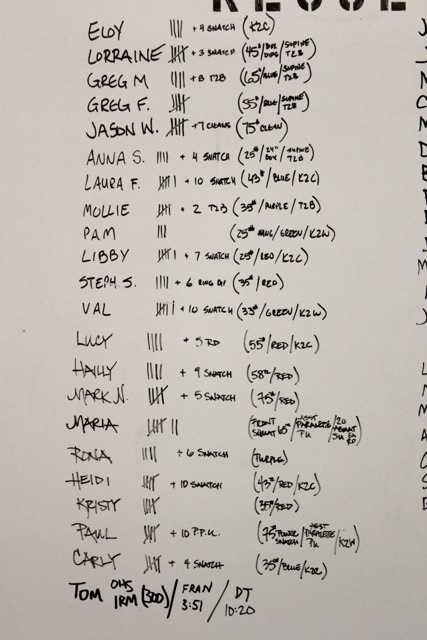 ELOY |||| + 4 SNATCH (K2C)
LORRAINE |||| + 3 SNATCH (45#/BOX DIPS/SUPINE T2B)
GREG M |||| + 8 T2B (65#/BLUE/SUPINE T2B)
GREG F. |||| (55#/BLUE/SUPINE T2B)
JASON W. |||| + 7 CLEANS (75# CLEAN)
ANNA S. |||| + 4 SNATCH (25#/24" BOX/SUPINE T2B)
LAURA F. |||| | + 10 SNATCH (43#/BLUE/K2C)
MOLLIE |||| + 2 T2B (35#/PURPLE/T2B)
PAM ||| (25# HANG/GREEN/K2W)
LIBBY |||| | + 7 SNATCH (25#/RED/K2C)
STEPH S. |||| + 6 RING DI (35#/RED)
VAL |||| | + 10 SNATCH (33#/GREEN/K2W)
LUCY |||| + 5 RD (55#/RED/K2C)
HAILLY |||| + 9 SNATCH (58#/RED)
MARK N. |||| + 5 SNATCH (75#/RED)
MARIA |||| || (FRONT SQUAT 65#/ASST PARALETTE PU/20 ABMAT SU)
RONA |||| + 6 SNATCH (PURPLE)
HEIDI |||| + 10 SNATCH (43#/RED/K2C)
KRISTY |||| (35#/RED)
PAUL |||| + 10 P.P.U. (75# POWER SNATCH/ASST PARALETTE PU/K2W)
CARLY |||| + 4 SNATCH (35#/BLUE/K2C)
TOM OHS 1RM (300) / FRAN 3:51 / DT 10:20